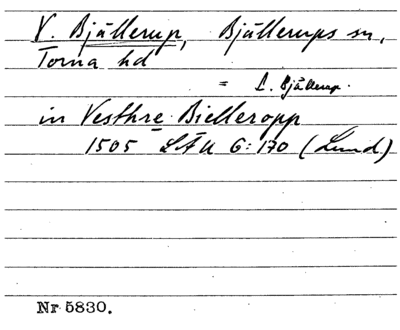 V. Bjällerup, Bjällerups sn,
Torna hd
= L. Bjällerup.
in Vesthre Bielleropp
1505 LÄU 6:170 (Lund.)
Nr 5830.